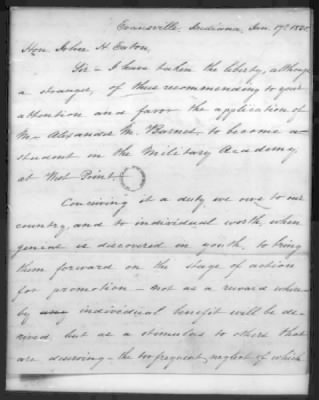 Evansville, Indiana, Jan. 17th
Hon. John H. Eaton,
Sir – I have taken the liberty, although
a stranger, of thus recommending to your
attention and favor the application of
Mr. Alexander M. Barnes, to become a
student in the Military Academy
at West Point.
Conceiving it a duty we owe to our
country, and to individual worth, when
genius is discovered in youth, to bring
them forward on the stage of action
for promotion – not as a reward where-
by individual benefit will be de-
rived but as a stimulus to others that
are deserving – the too frequent neglect of which